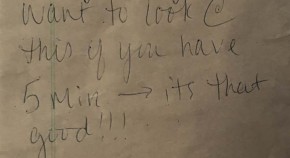 want to look @
this if you have
5 min → its that
good!!!